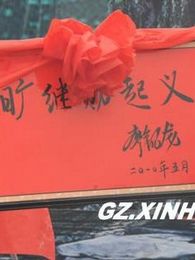 旷继勋起义
二〇一〇年五月
GZ.XINH